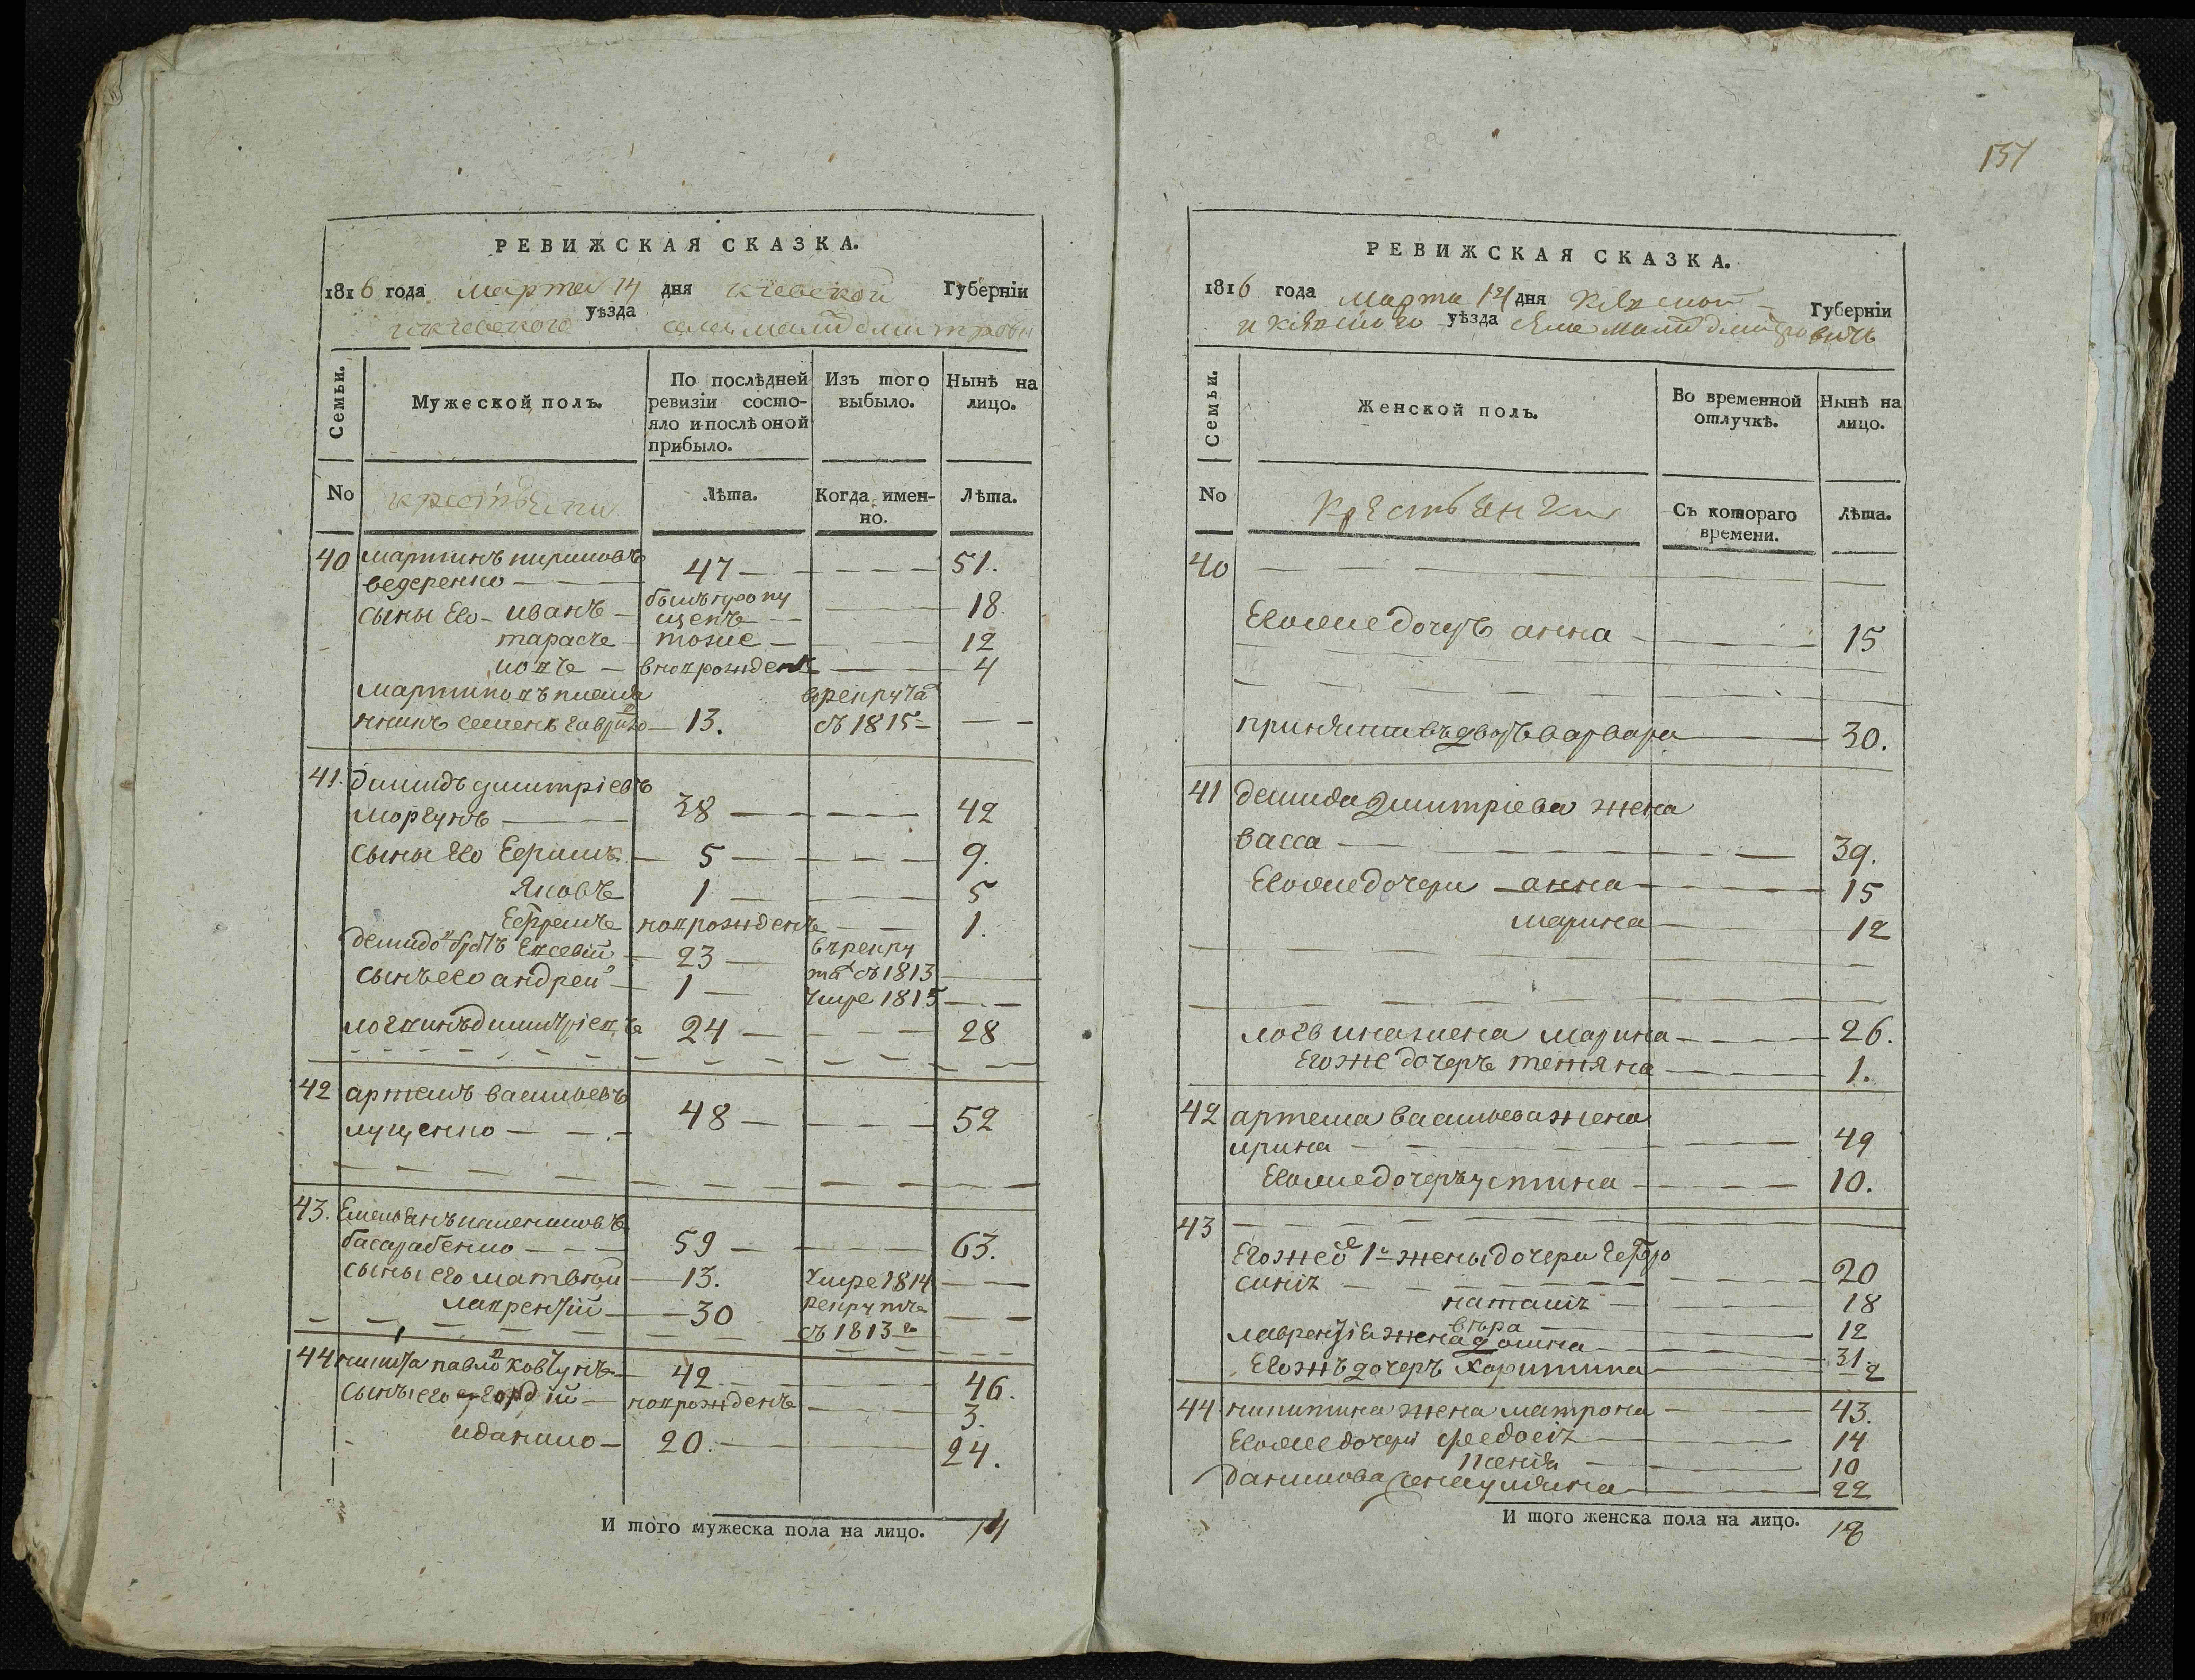 РЕВИЖСКАЯ СКАЗКА.
1816 года марта 14 дня киевской Губерніи
и киевского уѣзда села
Семьи.
Мужеской полъ.
По послѣдней ревизіи состо-
яло и послѣ оной
прибыло.
Изъ того
выбыло.
Нынѣ на
лицо.
No крестьяни Лѣта. Когда имен-
но. Лѣта.
40 мартинъ
веденко 47 51.
сыны его иванъ былъ пропу
щенъ 18
тарасъ тоже 12
новрожденъ 4
мартиновъ племя
нникъ семенъ 13. в рекрута
съ 1815
41. демидъ дмитріевъ
моргунъ 38 42
сыны его 5 9.
Яковъ 1 5
Ефремъ новрожденъ 1.
демидовъ братъ Евсевій 23 въ рекру
та съ 1813
сынъ его андрей 1 умре 1815
логвинъ дмитріевъ 24 28
42 артемъ васильевъ
луценко 48 52
43. Емельянъ
басарабенко 59 63.
сыны его матвѣй 13. умре 1814
лаврентій 30 рекрутъ
съ 1813 го
44 никита павлов ковтунъ 42 46.
сынъ его гордій новрожденъ 3.
иданило 20. 24.
И того мужеска пола на лицо. 14
137
РЕВИЖСКАЯ СКАЗКА.
1816 года марта 14 дня Губерніи
и уѣзда
Семьи.
Женской полъ.
Во временной
отлучкѣ.
Нынѣ на
лицо.
No крестьянки Съ котораго
времени. Лѣта.
40
Егоже дочерь анна 15
принятая въ дворъ варвара 30.
41 демида дмитріева жена
васса 39.
Егоже дочери анна 15
марина 12
логвина жена марина 26.
Егоже дочеръ тетяна 1.
42 артема васильева жена
ирина 49
Егоже дочеръ устина 10.
43
Егоже 1й жены дочери
20
18
вѣра 12
лаврентія жена домна 31
Егожъ дочеръ Харитина 2
44 никитина жена матрона 43.
Егоже дочери федосія 14
10
данилова жена уляна 22
И того женска пола на лицо. 18